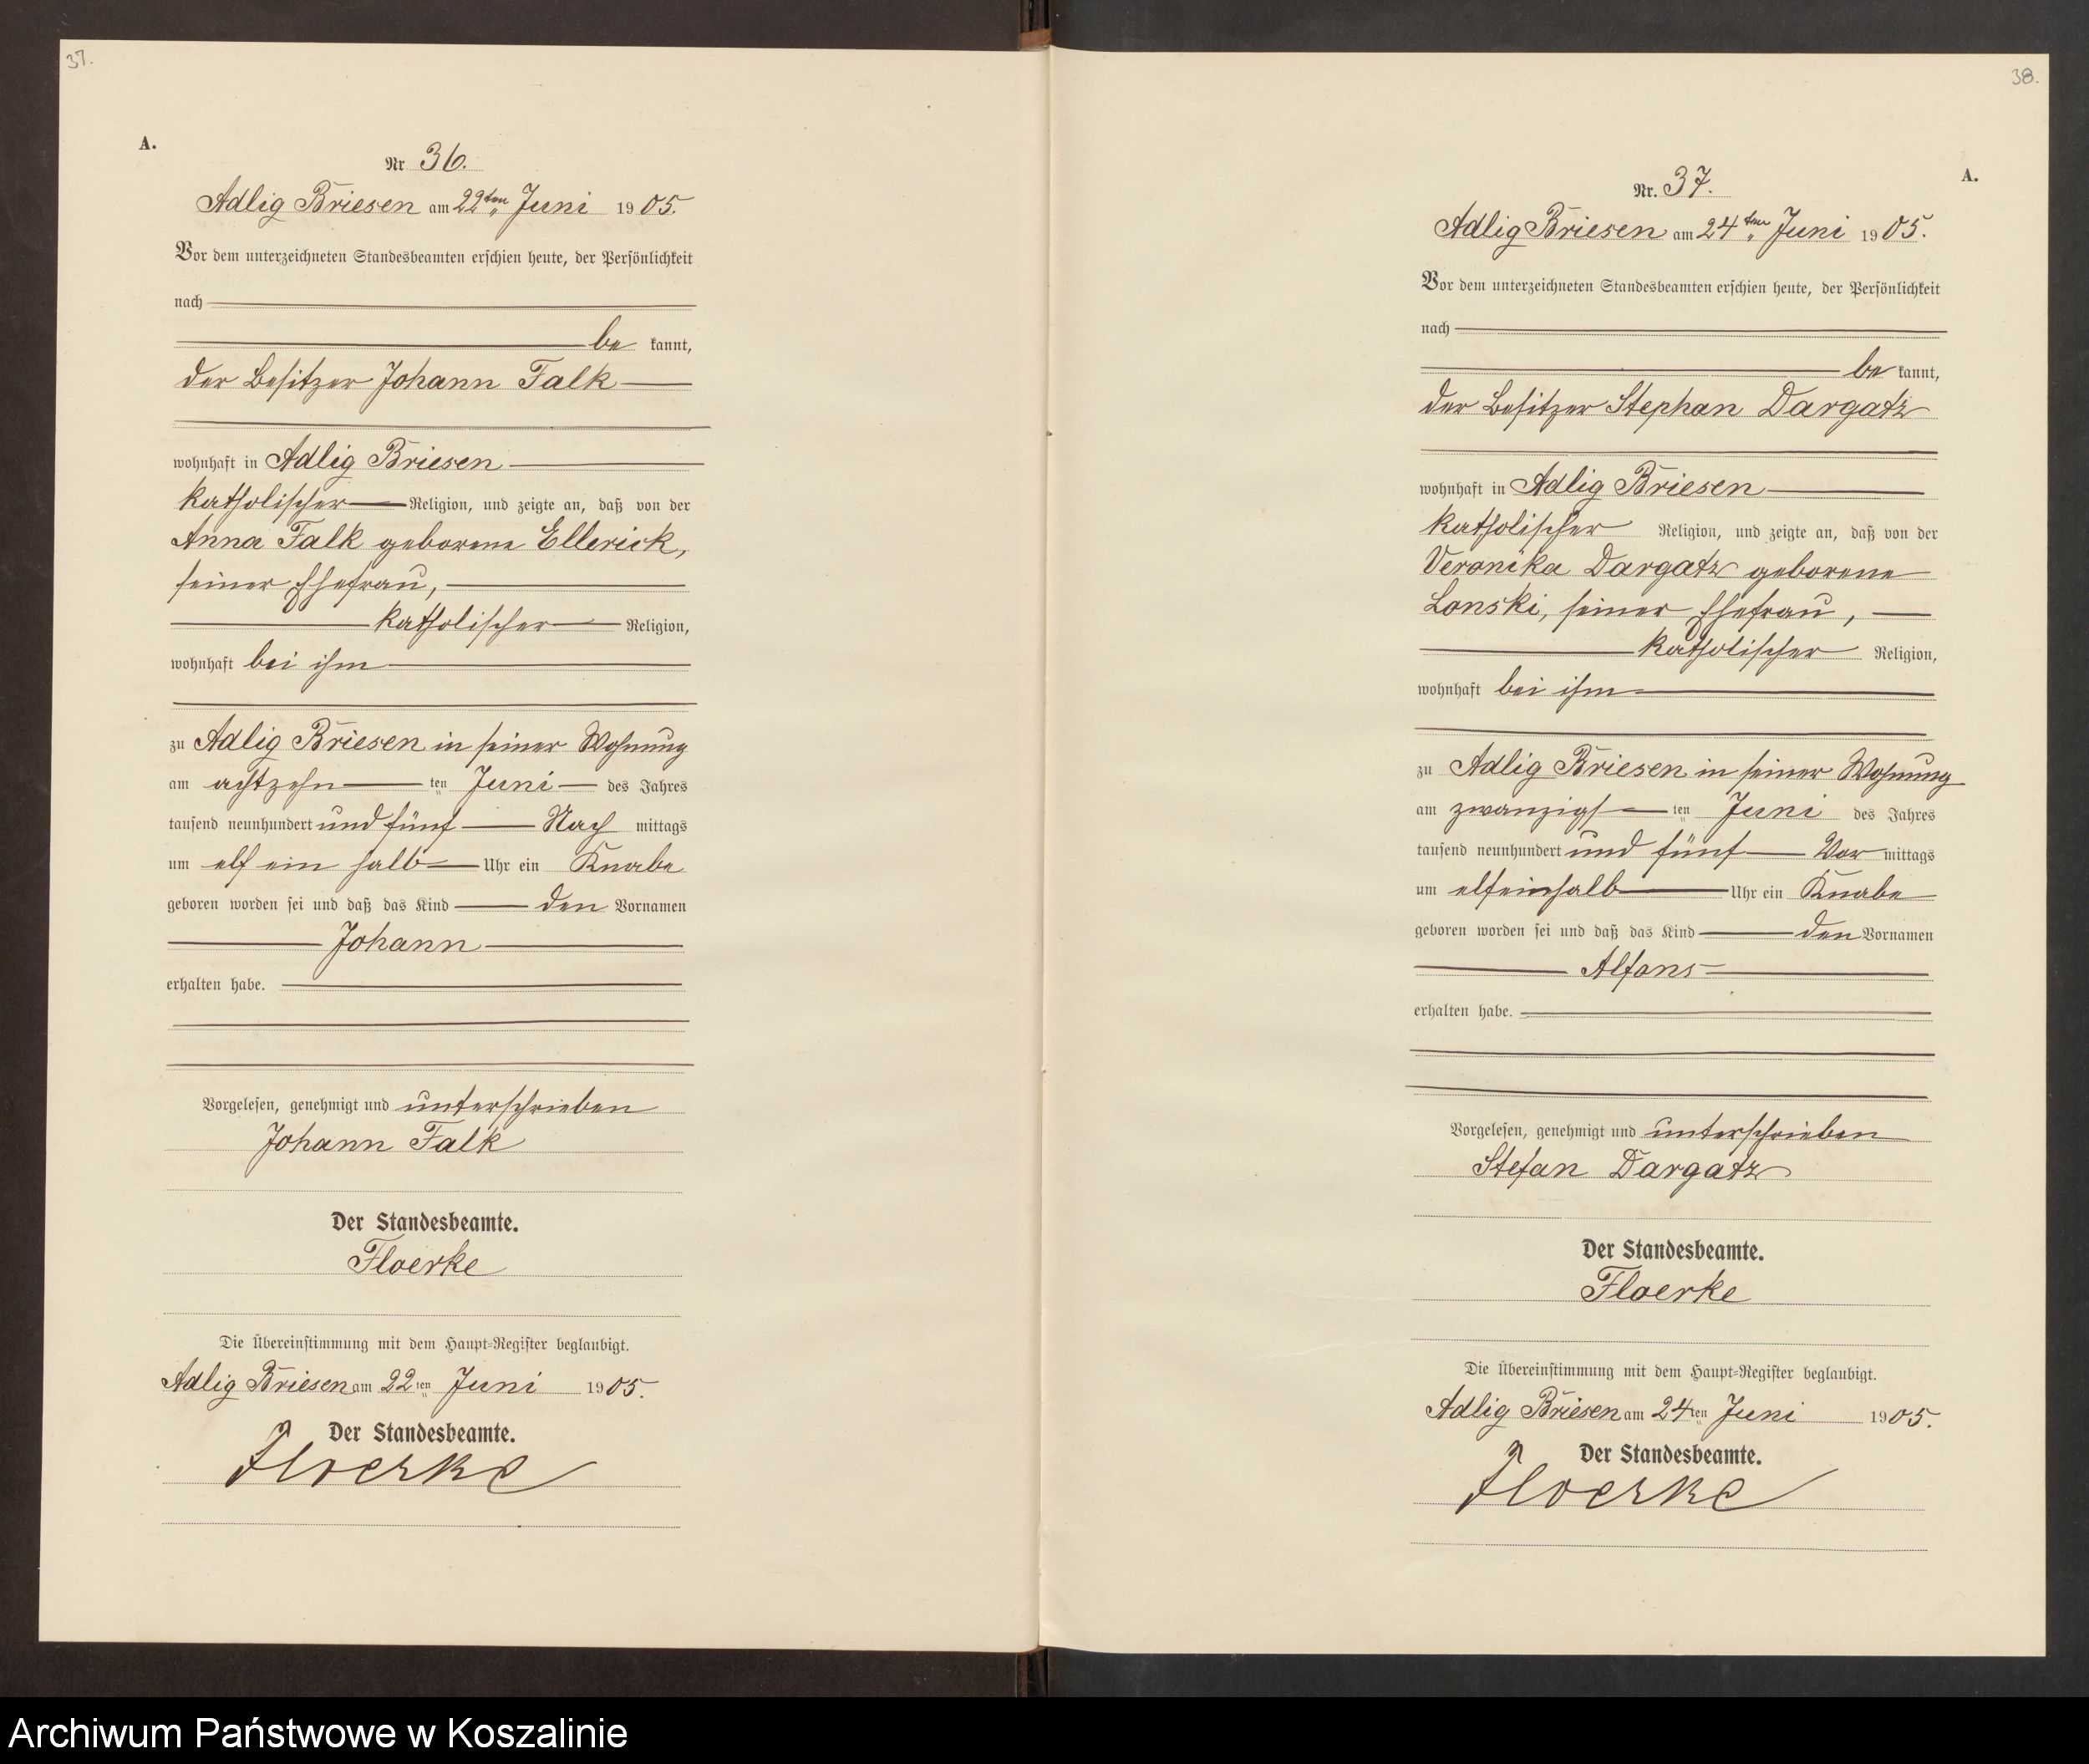 37.
A.
Nr 36.
Adlig Briesen am 22ten Juni 1905.
Vor dem unterzeichneten Standesbeamten erschien heute, der Persönlichkeit
nach
be kannt,
der Besitzer Johann Falk
wohnhaft in Adlig Briesen
katholischer Religion, und zeigte an, daß von der
Anna Falk geborene Ellerick,
seiner Ehefrau,
katholischer Religion,
wohnhaft bei ihm
zu Adlig Briesen in seiner Wohnung
am achtzehn ten Juni des Jahres
tausend neunhundert und fünf Nach mittags
um elf ein halb Uhr ein Knabe
geboren worden sei und daß das Kind den Vornamen
Johann
erhalten habe.
Vorgelesen, genehmigt und unterschrieben
Johann Falk
Der Standesbeamte.
Floerke
Die Übereinstimmung mit dem Haupt-Register beglaubigt.
Adlig Briesen am 22ten Juni 1905.
Der Standesbeamte.
Floerke
38.
A.
Nr. 37.
Adlig Briesen am 24ten Juni 1905.
Vor dem unterzeichneten Standesbeamten erschien heute, der Persönlichkeit
nach
be kannt,
der Besitzer Stephan Dargatz
wohnhaft in Adlig Briesen
katholischer Religion, und zeigte an, daß von der
Veronika Dargatz geborene
Lonski, seiner Ehefrau,
katholischer Religion,
wohnhaft bei ihm
zu Adlig Briesen in seiner Wohnung
am zwanzigs ten Juni des Jahres
tausend neunhundert und fünf Vor mittags
um elfeinhalb Uhr ein Knabe
geboren worden sei und daß das Kind den Vornamen
Alfons
erhalten habe.
Vorgelesen, genehmigt und unterschrieben
Stefan Dargatz
Der Standesbeamte.
Floerke
Die Übereinstimmung mit dem Haupt-Register beglaubigt.
Adlig Briesen am 24ten Juni 1905.
Der Standesbeamte.
Floerke
Archiwum Państwowe w Koszalinie